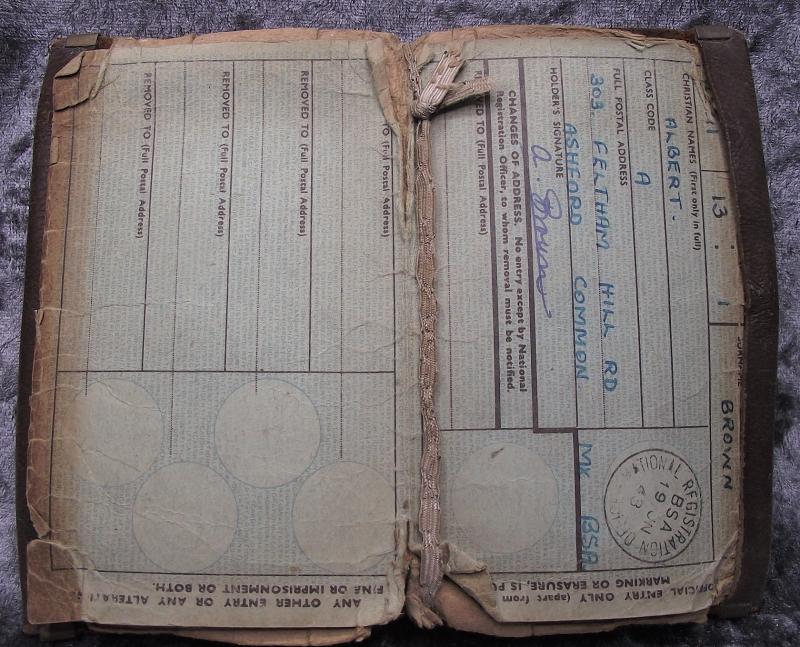 13 . 1
SURNAME
BROWN
CHRISTIAN NAMES (First only in full)
ALBERT.
CLASS CODE
A
FULL POSTAL ADDRESS
303. FELTHAM HILL RD
ASHFORD COMMON
MX BSA
HOLDER'S SIGNATURE
A. Brown
CHANGES OF ADDRESS. No entry except by National
Registration Officer, to whom removal must be notified.
TO (Full Postal Address)
NATIONAL REGISTRATION
BSA
19 JN
43
OFFICIAL ENTRY ONLY (apart from
MARKING OR ERASURE, IS
TO (Full Postal Address)
REMOVED TO (Full Postal Address)
REMOVED TO (Full Postal Address)
REMOVED TO (Full Postal Address)
ANY OTHER ENTRY OR ANY
FINE OR IMPRISONMENT OR BOTH.